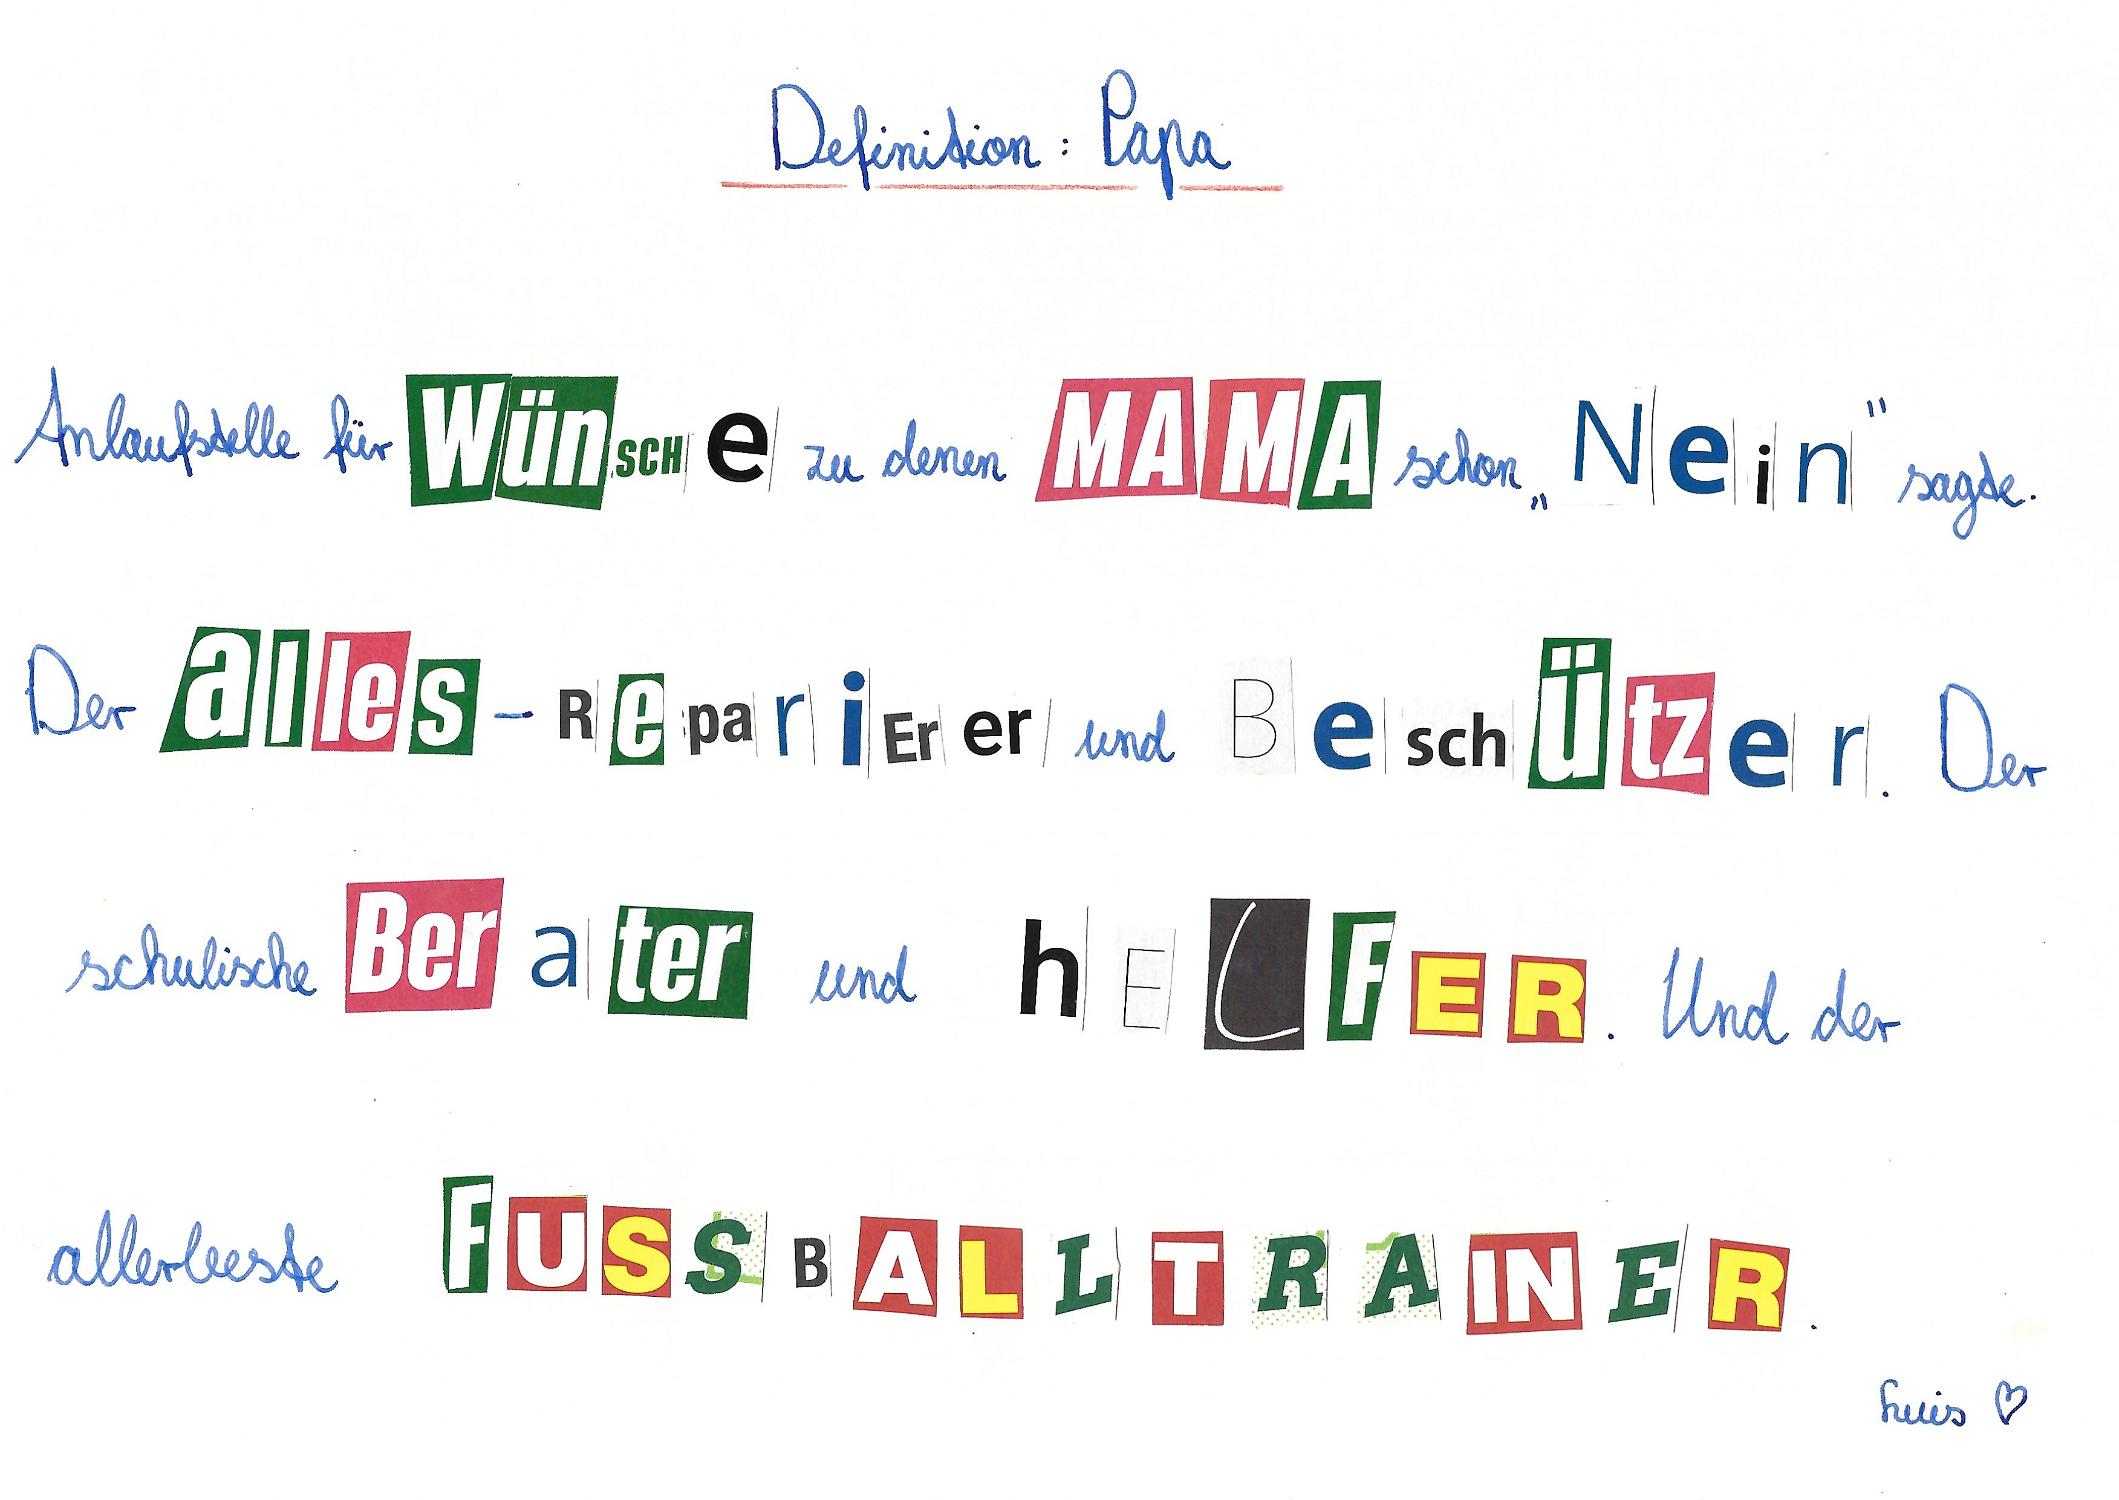 Definition: Papa
Anlaufstelle für WünscHe zu denen MAMA schon „Nein" sagte.
Der alles - RepariErer und BeschÜtzer. Der
schulische Berater und hELFER. Und der
allerbeste FUSSBALLTRAINER.
Luis ♡